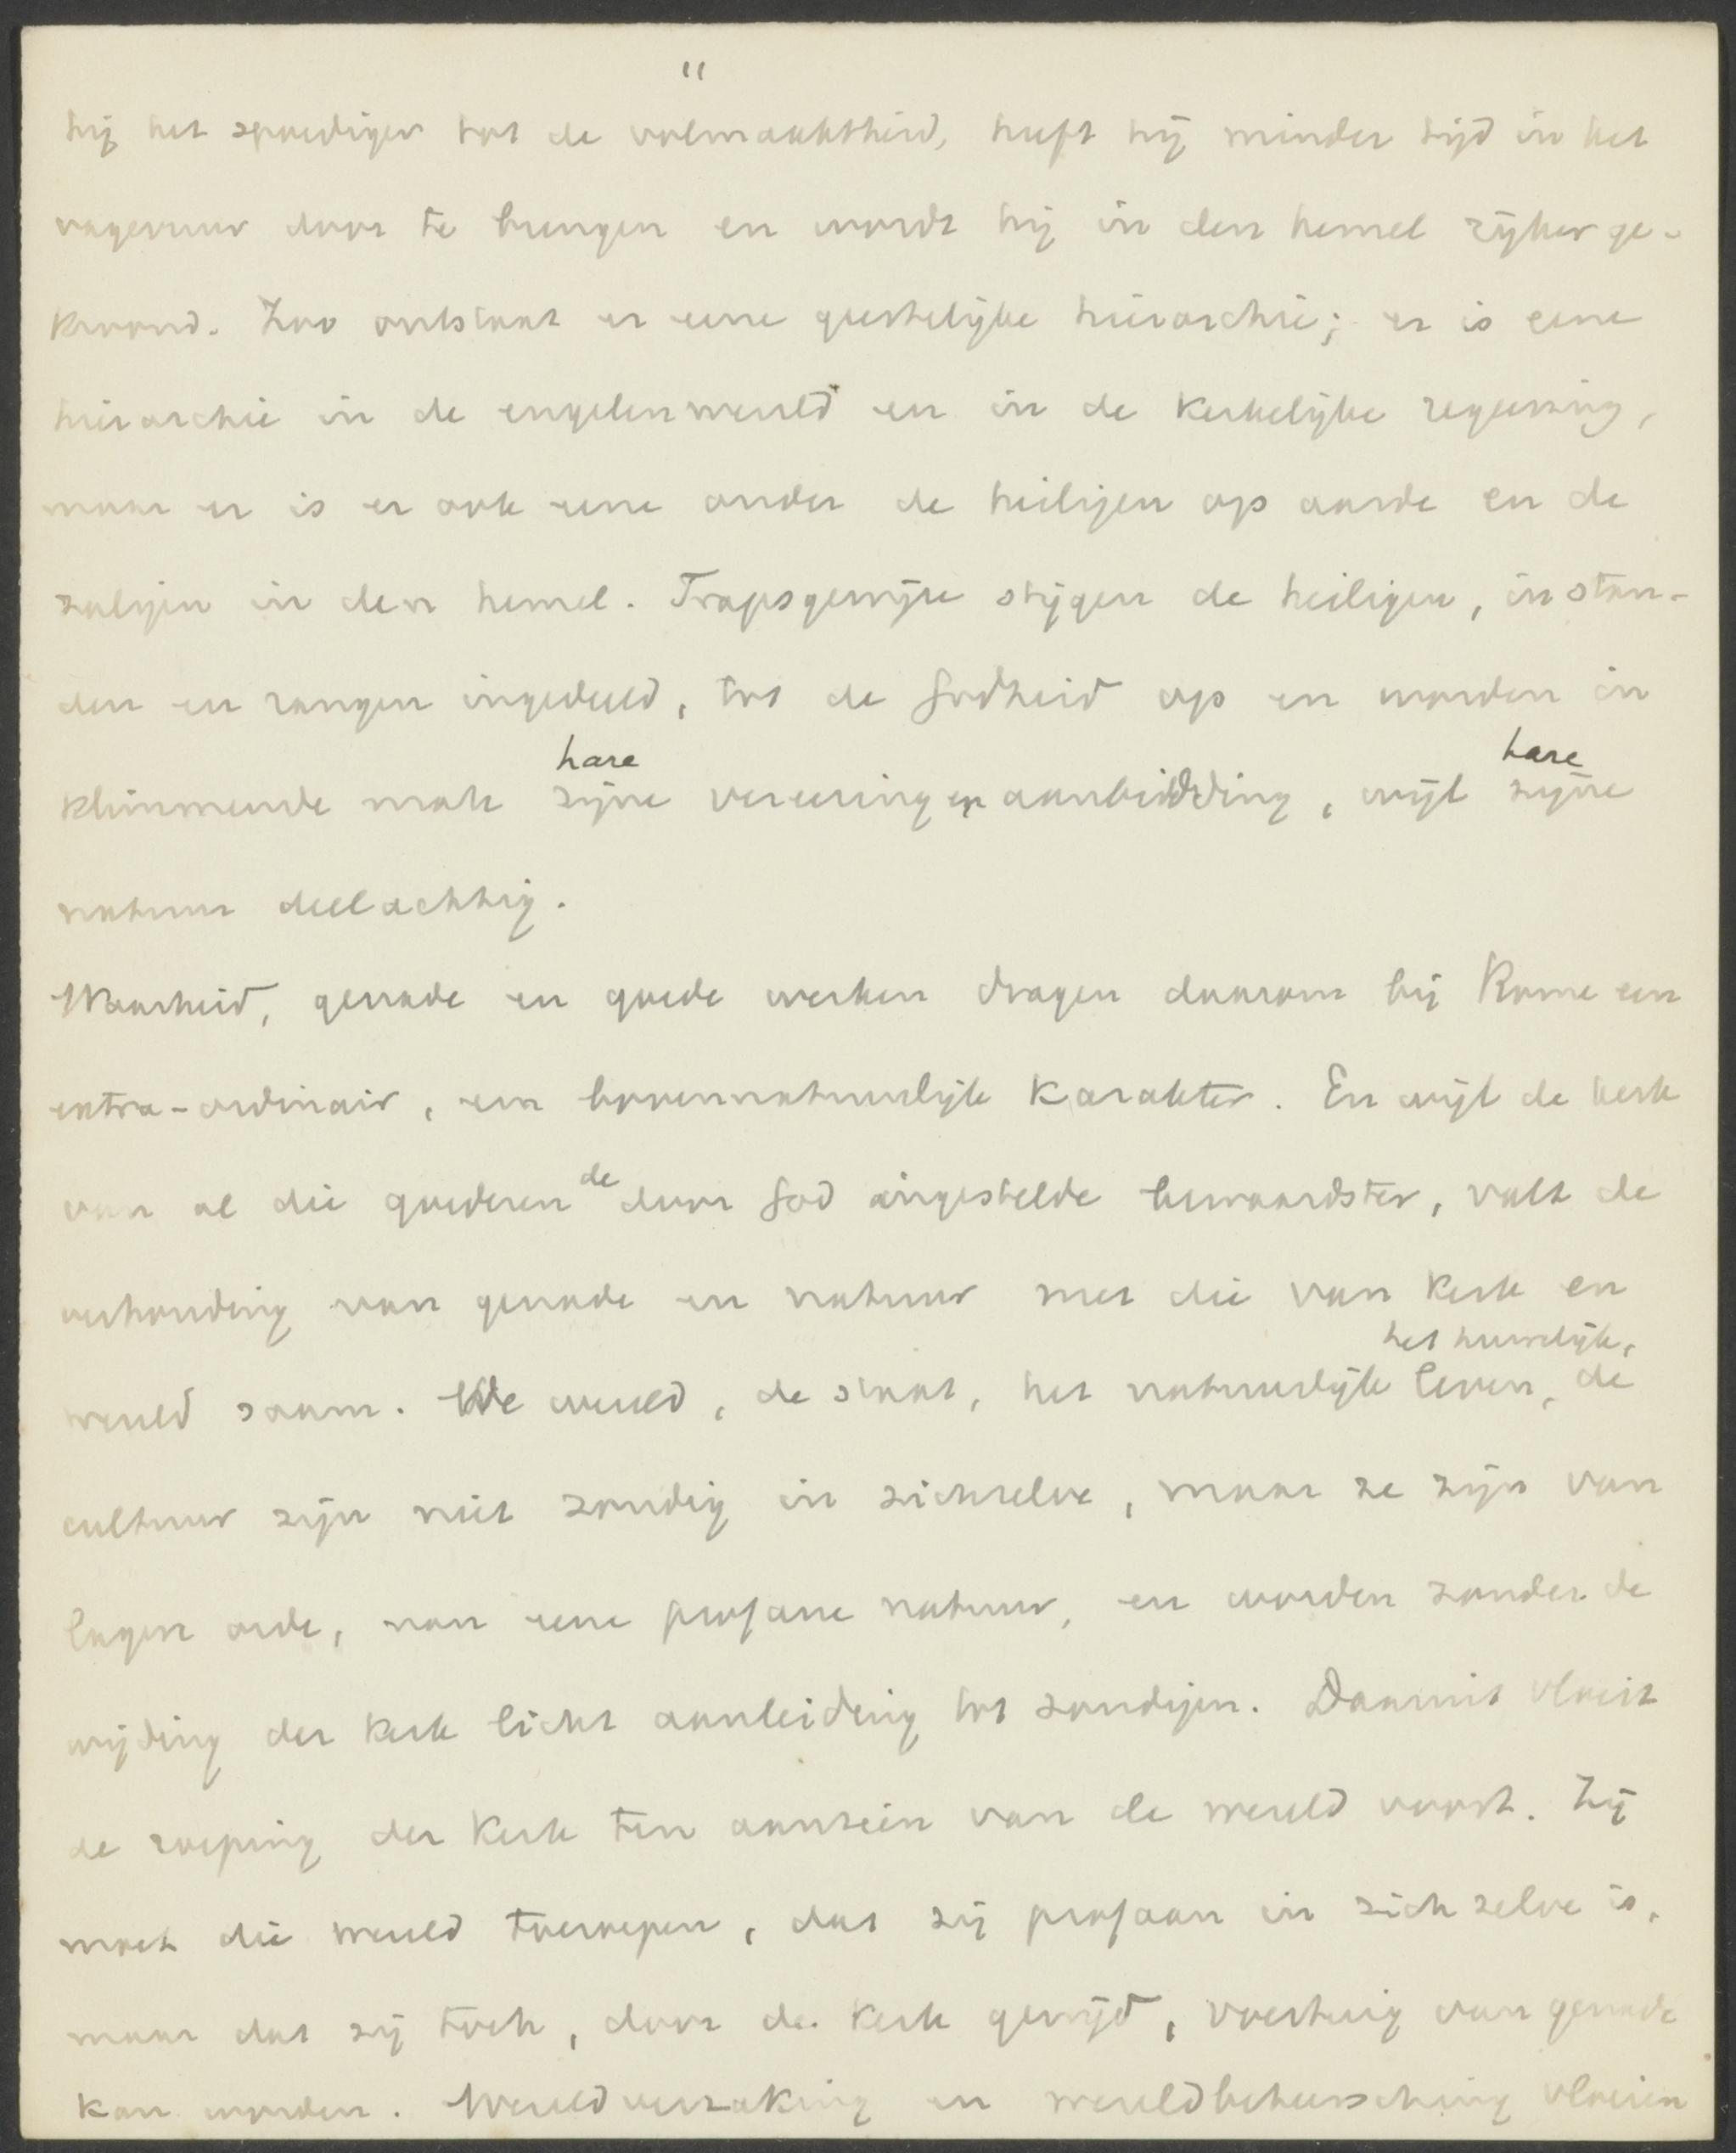 11
hij het spoediger tot de volmaaktheid, heeft hij minder tijd in het
vagevuur door te brengen en wordt hij in den hemel rijker ge-
kroond. Zoo ontstaat er eene geestelijke hierarchie; er is eene
hierarchie in de engelenwereld en in de kerkelijke regeering,
maar er is er ook eene onder de heiligen op aarde en de
zaligen in den hemel. Trapsgewijze stijgen de heiligen, in stan-
den en rangen ingedeeld, tot de Godheid op en worden in
hare hare
klimmende mate zijne vereering en aanbidding, wijl zijne
natuur deelachtig.
Waarheid, genade en goede werken dragen daarom bij Rome een
extra-ordinair, een bovennatuurlijk karakter. En wijl de kerk
de
van al die goederen door God aangestelde bewaardster, valt de
verhouding van genade en natuur met die van kerk en
het huwelijk,
wereld saam. De wereld, de staat, het natuurlijk leven, de
cultuur zijn niet zondig in zichzelve, maar ze zijn van
lager orde, van eene profane natuur, en worden zonder de
wijding der kerk licht aanleiding tot zondigen. Daaruit vloeit
de roeping der kerk ten aanzien van de wereld voort. Zij
moet die wereld toeroepen, dat zij profaan in zich zelve is,
maar dat zij toch, door de kerk gewijd, voertuig van genade
kan worden. Wereldverzaking en wereldbeheersching vloeien